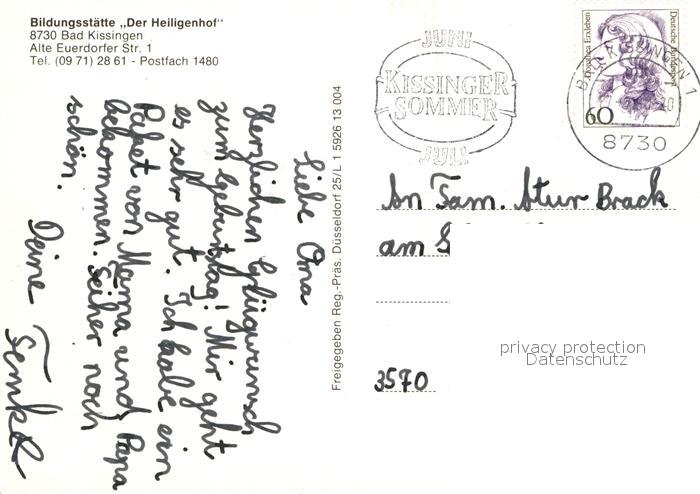 Bildungsstätte „Der Heiligenhof"
8730 Bad Kissingen
Alte Euerdorfer Str. 1
Tel. (09 71) 28 61 - Postfach 1480
Liebe Oma
Herzlichen Glügwunsch
zum Geburtstag! Mir geht
es sehr gut. Ich habe ein
Paket von Mama und Papa
bekommen. Seiher noch
schön.
Deine
Femke
Freigegeben Reg.-Präs. Düsseldorf 25/L 1 5926 13 004
JUNI
KISSINGER
SOMMER
JULI
Dorothea Erxleben
Deutsche Bundespost
60
BAD KISSINGEN 1
8730
An Fam. Atur Brack
am S
3570
privacy protection
Datenschutz